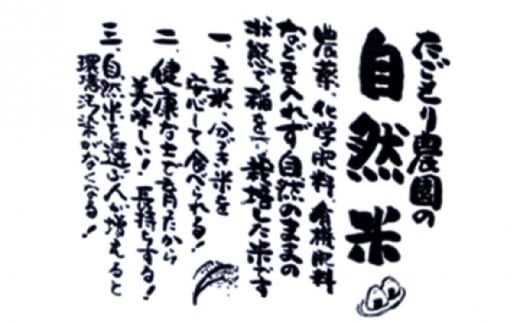 たごもり農園の
自然米
農薬、化学肥料、有機肥料
などを入れず自然のままの
状態で稲を栽培した米です
一、玄米、分づき米を
安心して食べられる!
二、健康な土で育ったから
美味しい!長持ちする!
三、自然米を選ぶ人が増えると
環境汚染がなくなる!